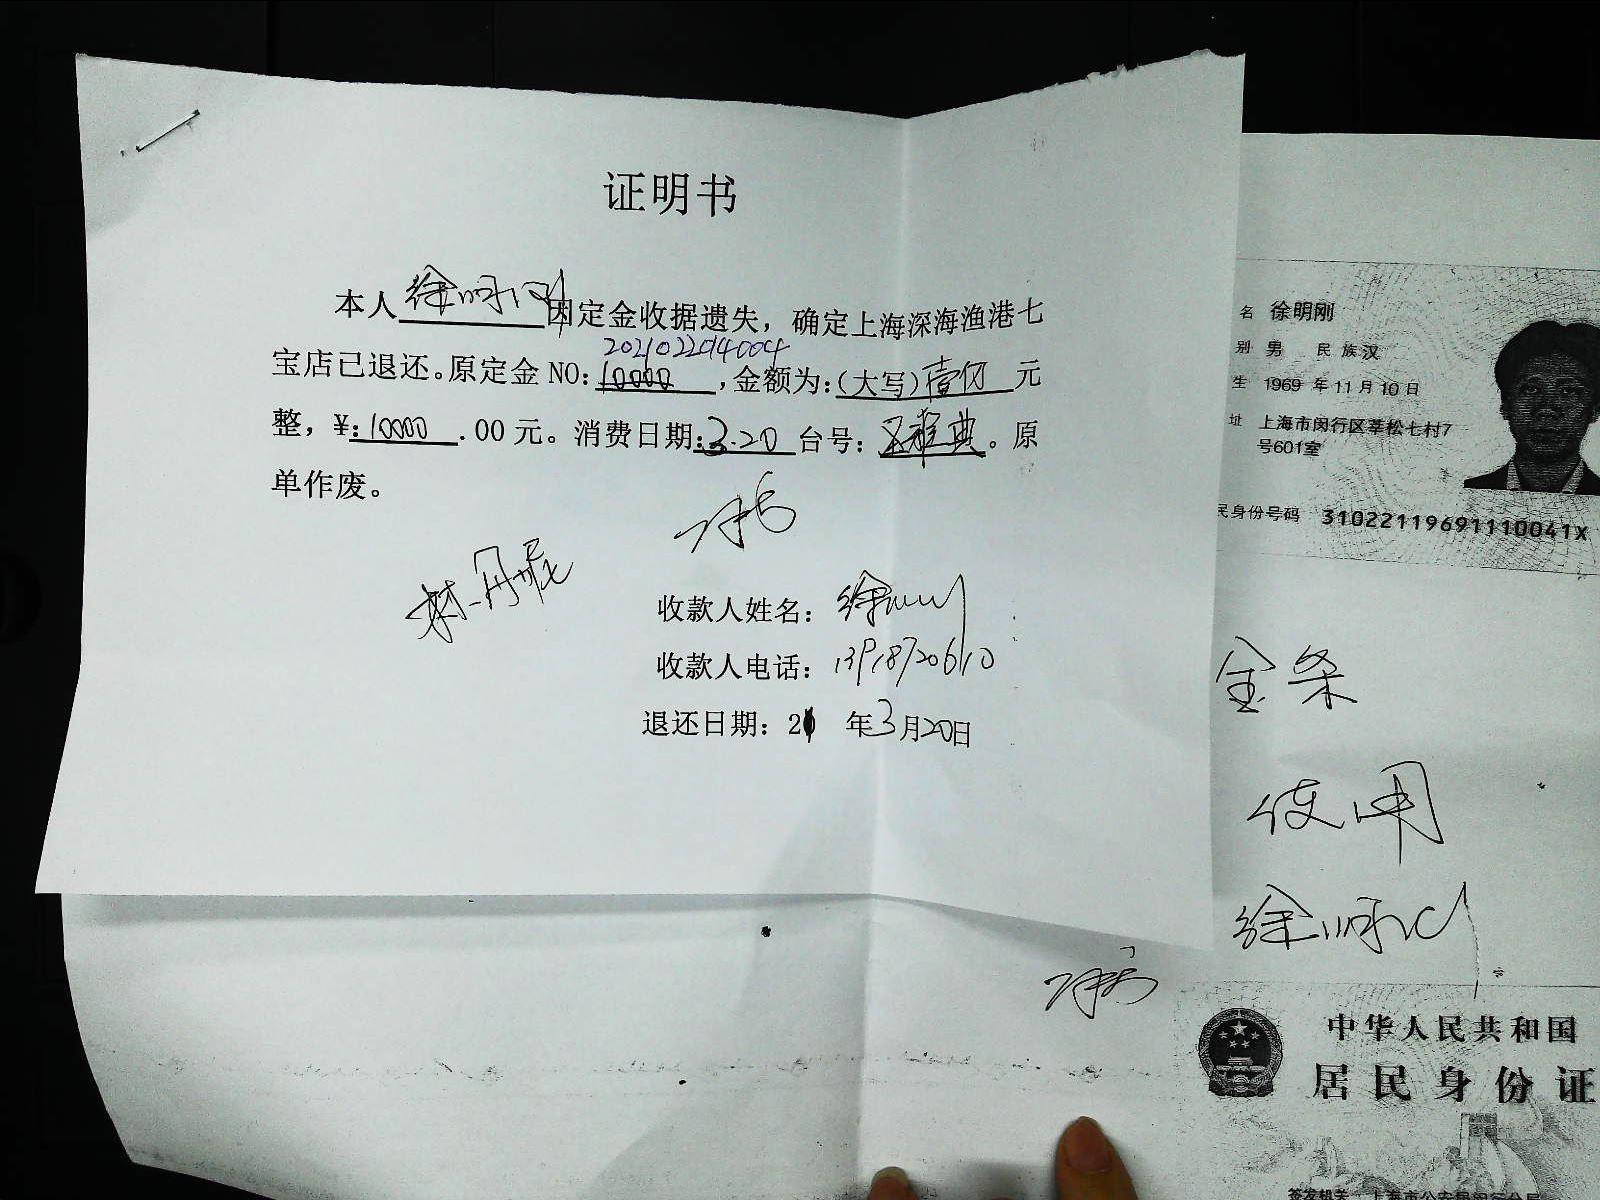 证明书
本人徐明刚因定金收据遗失，确定上海深海渔港七
2021022014004
宝店已退还。原定金 NO:10000，金额为:（大写）壹仟元
整，¥:10000.00元。消费日期:3.20台号:雅典。原
单作废。
林丹妮
收款人姓名：徐明刚
收款人电话：13918720610
退还日期：21年3月20日
名 徐明刚
别 男 民族汉
生 1969年11月10日
址 上海市闵行区莘松七村7
号601室
民身份号码 31022119691110041X
金条
使用
徐明刚
中华人民共和国
居民身份证
签发机关 上海市公安局闵行分局